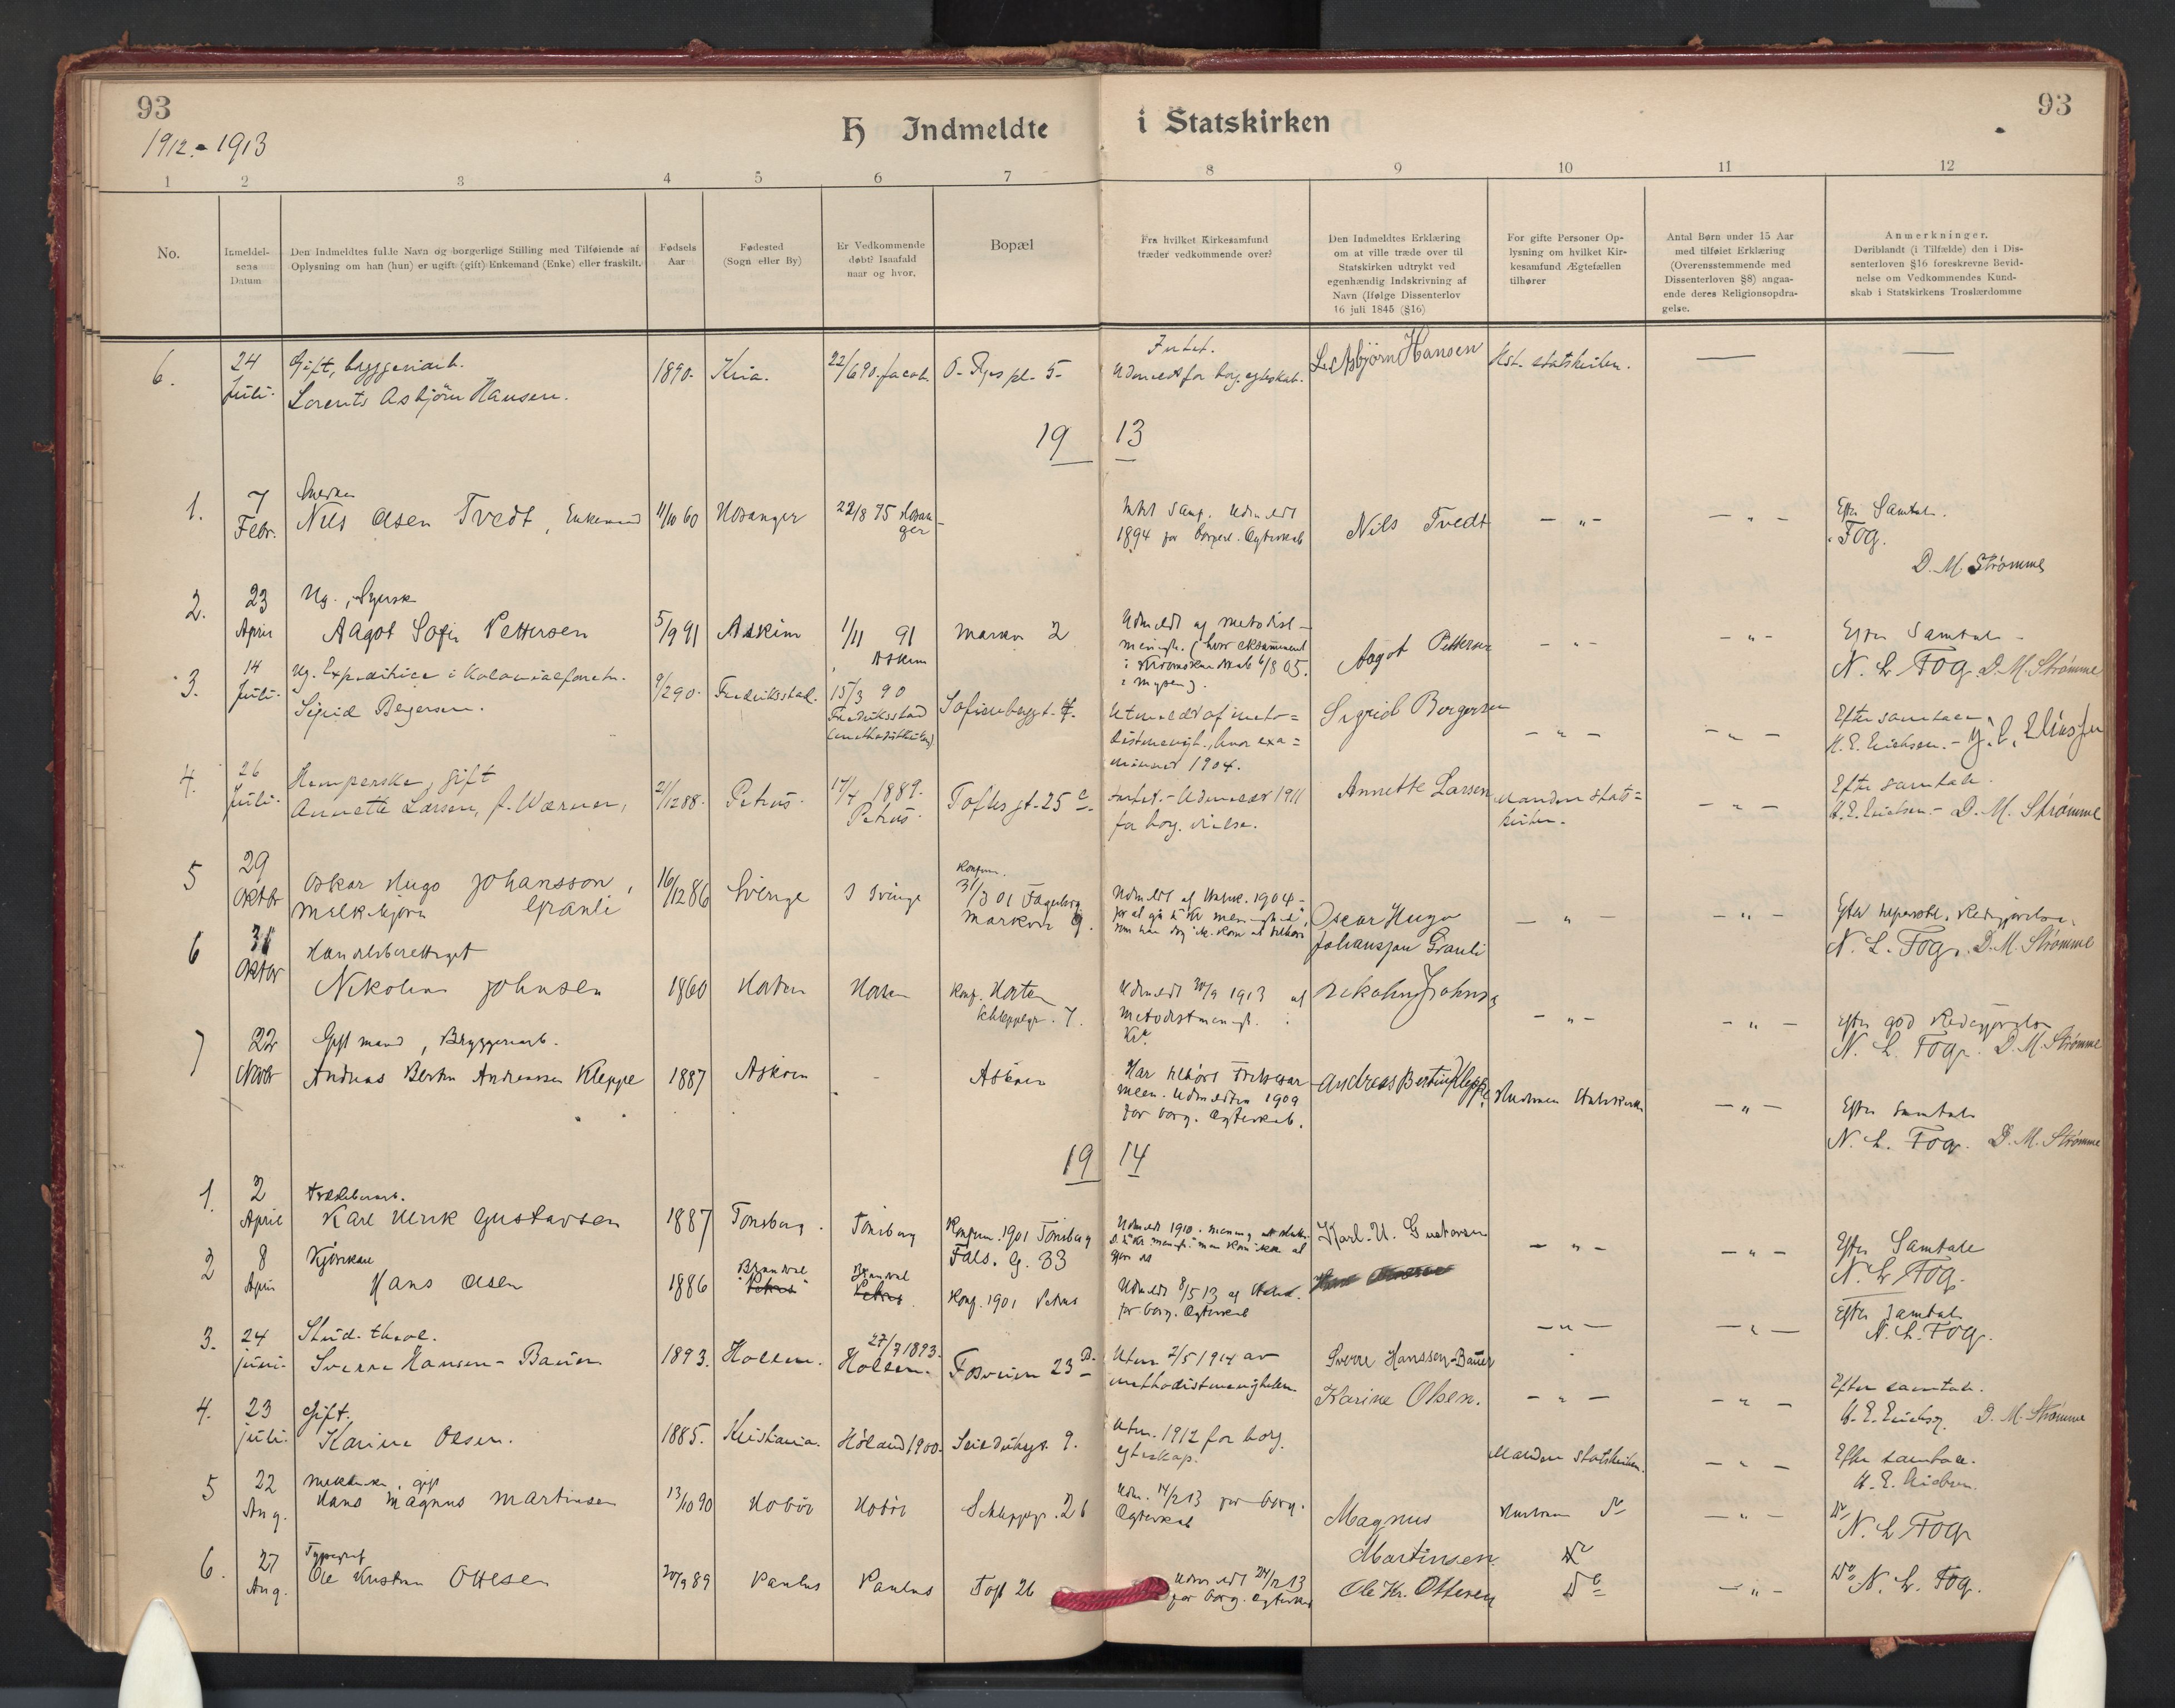 93
93
1912.-1913
H Indmeldte i Statskirken
1 2 3 4 5 6 7 8 9 10 11 12
No.
Inmeldel-
sens
Datum
Den Indmeldtes fulde Navn og borgerlige Stilling med Tilføiende af
Oplysning om han (hun) er ugift (gift) Enkemand (Enke) eller fraskilt.
Fødsels
Aar
Fødested
(Sogn eller By)
Er Vedkommende
døbt? Isaafald
naar og hvor.
Bopæl
Fra hvilket Kirkesamfund
træder vedkommende over?
Den Indmeldtes Erklæring
om at ville træde over til
Statskirken udtrykt ved
egenhændig Indskrivning af
Navn (Ifølge Dissenterlov
16 juli 1845 (§16)
For gifte Personer Op-
lysning om hvilket Kir-
kesamfund Ægtefællen
tilhører
Antal Børn under 15 Aar
med tilføiet Erklæring
(Overensstemmende med
Dissenterloven §8) angaa-
ende deres Religionsopdra-
gelse.
Anmerkninger.
Deriblandt (i Tilfælde) den i Dis-
senterloven §16 foreskrevne Bevid-
nelse om Vedkommendes Kund-
skab i Statskirkens Troslærdomme
6.
24
Juli.
Gift, bryggeriarb.
Lorents Asbjörn Hansen.
1890.
Kria.
22/6 90. Jacob.
5-
Intet.
Udmeldt for borg. egteskab.
L. Asbjörn Hansen
statskirken.
19 13
1.
7
Febr.
Nils Olsen Tvedt, Enkemand
11/10 60
Hosanger
22/8 75 Hosan-
ger
Intet Samf. Udmeldt
1894 for borgerl. Ægteskab
Nils Tvedt
- " -
- " -
Efter Samtale.
Fog.
D. M. Strømme
2.
23
April
Ug., Sypike
Aagot Sofie Pettersen
5/9 91
Askim
1/11 91
Askim
Markv 2
Udmeldt af Metodist-
menigh. (hvor eksamineret
i Kristenskundskab 6/8 05.
i Mysen).
Aagot Pettersen
- " -
- " -
Efter Samtale -
N. L. Fog. D. M. Strømme
3.
14
Juli.
Ug. Expeditrice i Kolonialforretn.
Sigrid Bergersen.
9/2 90.
Fredriksstad.
15/3 90
Fredriksstad
(methodistkirken)
Sofienberggt.
Utmeldt af meto=
distmenigh., hvor exa=
mineret 1904.
Sigrid Bergersen
- " -
- " -
Efter samtale
H. E. Erichsen. -
4.
26
Juli.
gift
Annette Larsen, f. Warner,
2/12 88.
Petrus.
17/4 1889.
Petrus.
Toftes gt. 25 c.
Intet. - Udmeldt 1911
for borg. vielse.
Annette Larsen
Manden stats=
kirken.
- " -
Efter samtale.
H. E. Erichsen. - D. M. Strømme
5
29
Oktbr
Oskar Hugo Johansson,
Melkekjører Granli
16/12 86
Sverige
I Sverige
Konfirm.
31/3 01 Fagerborg
Markvn 9.
Udmeldt af Statsk. 1904 -
Oscar Hugo
Johansson Granli
- " -
- " -
N. L. Fog. D. M. Strømme
6
31
Oktbr
Handelsberettiget
Nikoline Johnsen
1860
Horten
Horten
Konf. Horten
Schleppegr. 7.
Udmeldt 20/9 1913 af
Metodistmenigh. i
Kra.
Nekoline Johnsen
- " -
- " -
Efter god Redegjørelse
N. L. Fog. D. M. Strømme
7
22
Novbr
Gift mand, Bryggeriarb.
Andreas Bertin Andreassen Kleppe
1887
Askøen
-
Askøen
Har tilhørt Frelsesar
meen. Udmeldt 1909
for borg. Ægteskab.
Andreas Bertin Kleppe
Hustruen Statskirken
- " -
Efter Samtale
N. L. Fog. D. M. Strømme
19 14
1.
2
April
Karl Ulrik Gustavsen
1887
Tønsberg.
Tönsberg
Konfirm. 1901 Tönsberg
Fals. G. 33
Karl. U. Gustavsen
- " -
- " -
Efter Samtale
N. L. Fog.
2
8
April
Kjørekar
Hans Olsen
1886
Brandval
Petrus
Brandval
Petrus.
Konf. 1901 Petrus
Udmeldt 8/5 13 af Statsk.
for borg. Ægteskab
- " -
- " -
Efter Samtale
N. L. Fog.
3.
24
juni.
Stud. theol.
Sverre Hansen-Bauer
1893.
Hollen.
27/7 1893.
Hollen.
Fosveien 23 B.
Utm. 2/5 1914 av
methodistmenigheten
Sverre Hanssen-Bauer
- " -
- " -
Efter samtale.
H. E. Erichsen. D. M. Strømme
4.
23
juli.
Gift.
Karine Olsen.
1885.
Kristiania.
Höland 1900.
Seilduksgt. 9.
Utm. 1912 for borg.
egteskap.
Karine Olsen.
Manden Statskirken.
- " -
Efter samtale.
H. E. Erichsen.
5
22
Aug.
Mekaniker, gift
Hans Magnus Martinsen
13/10 90
Hobøl
Hobøl
Schleppgr. 26
Udm. 14/2 13 for borg.
Ægteskab
Magnus
Martinsen.
Hustruen Do
- " -
Do
N. L. Fog
6.
27
Aug.
Typograf
Ole Kristian Ottesen
20/9 89
Paulus
Paulus
Toft 26
Udmeldt 24/12 13
for borg. Ægteskab
Ole Kr. Ottesen
Do
- " -
Do N. L. Fog.